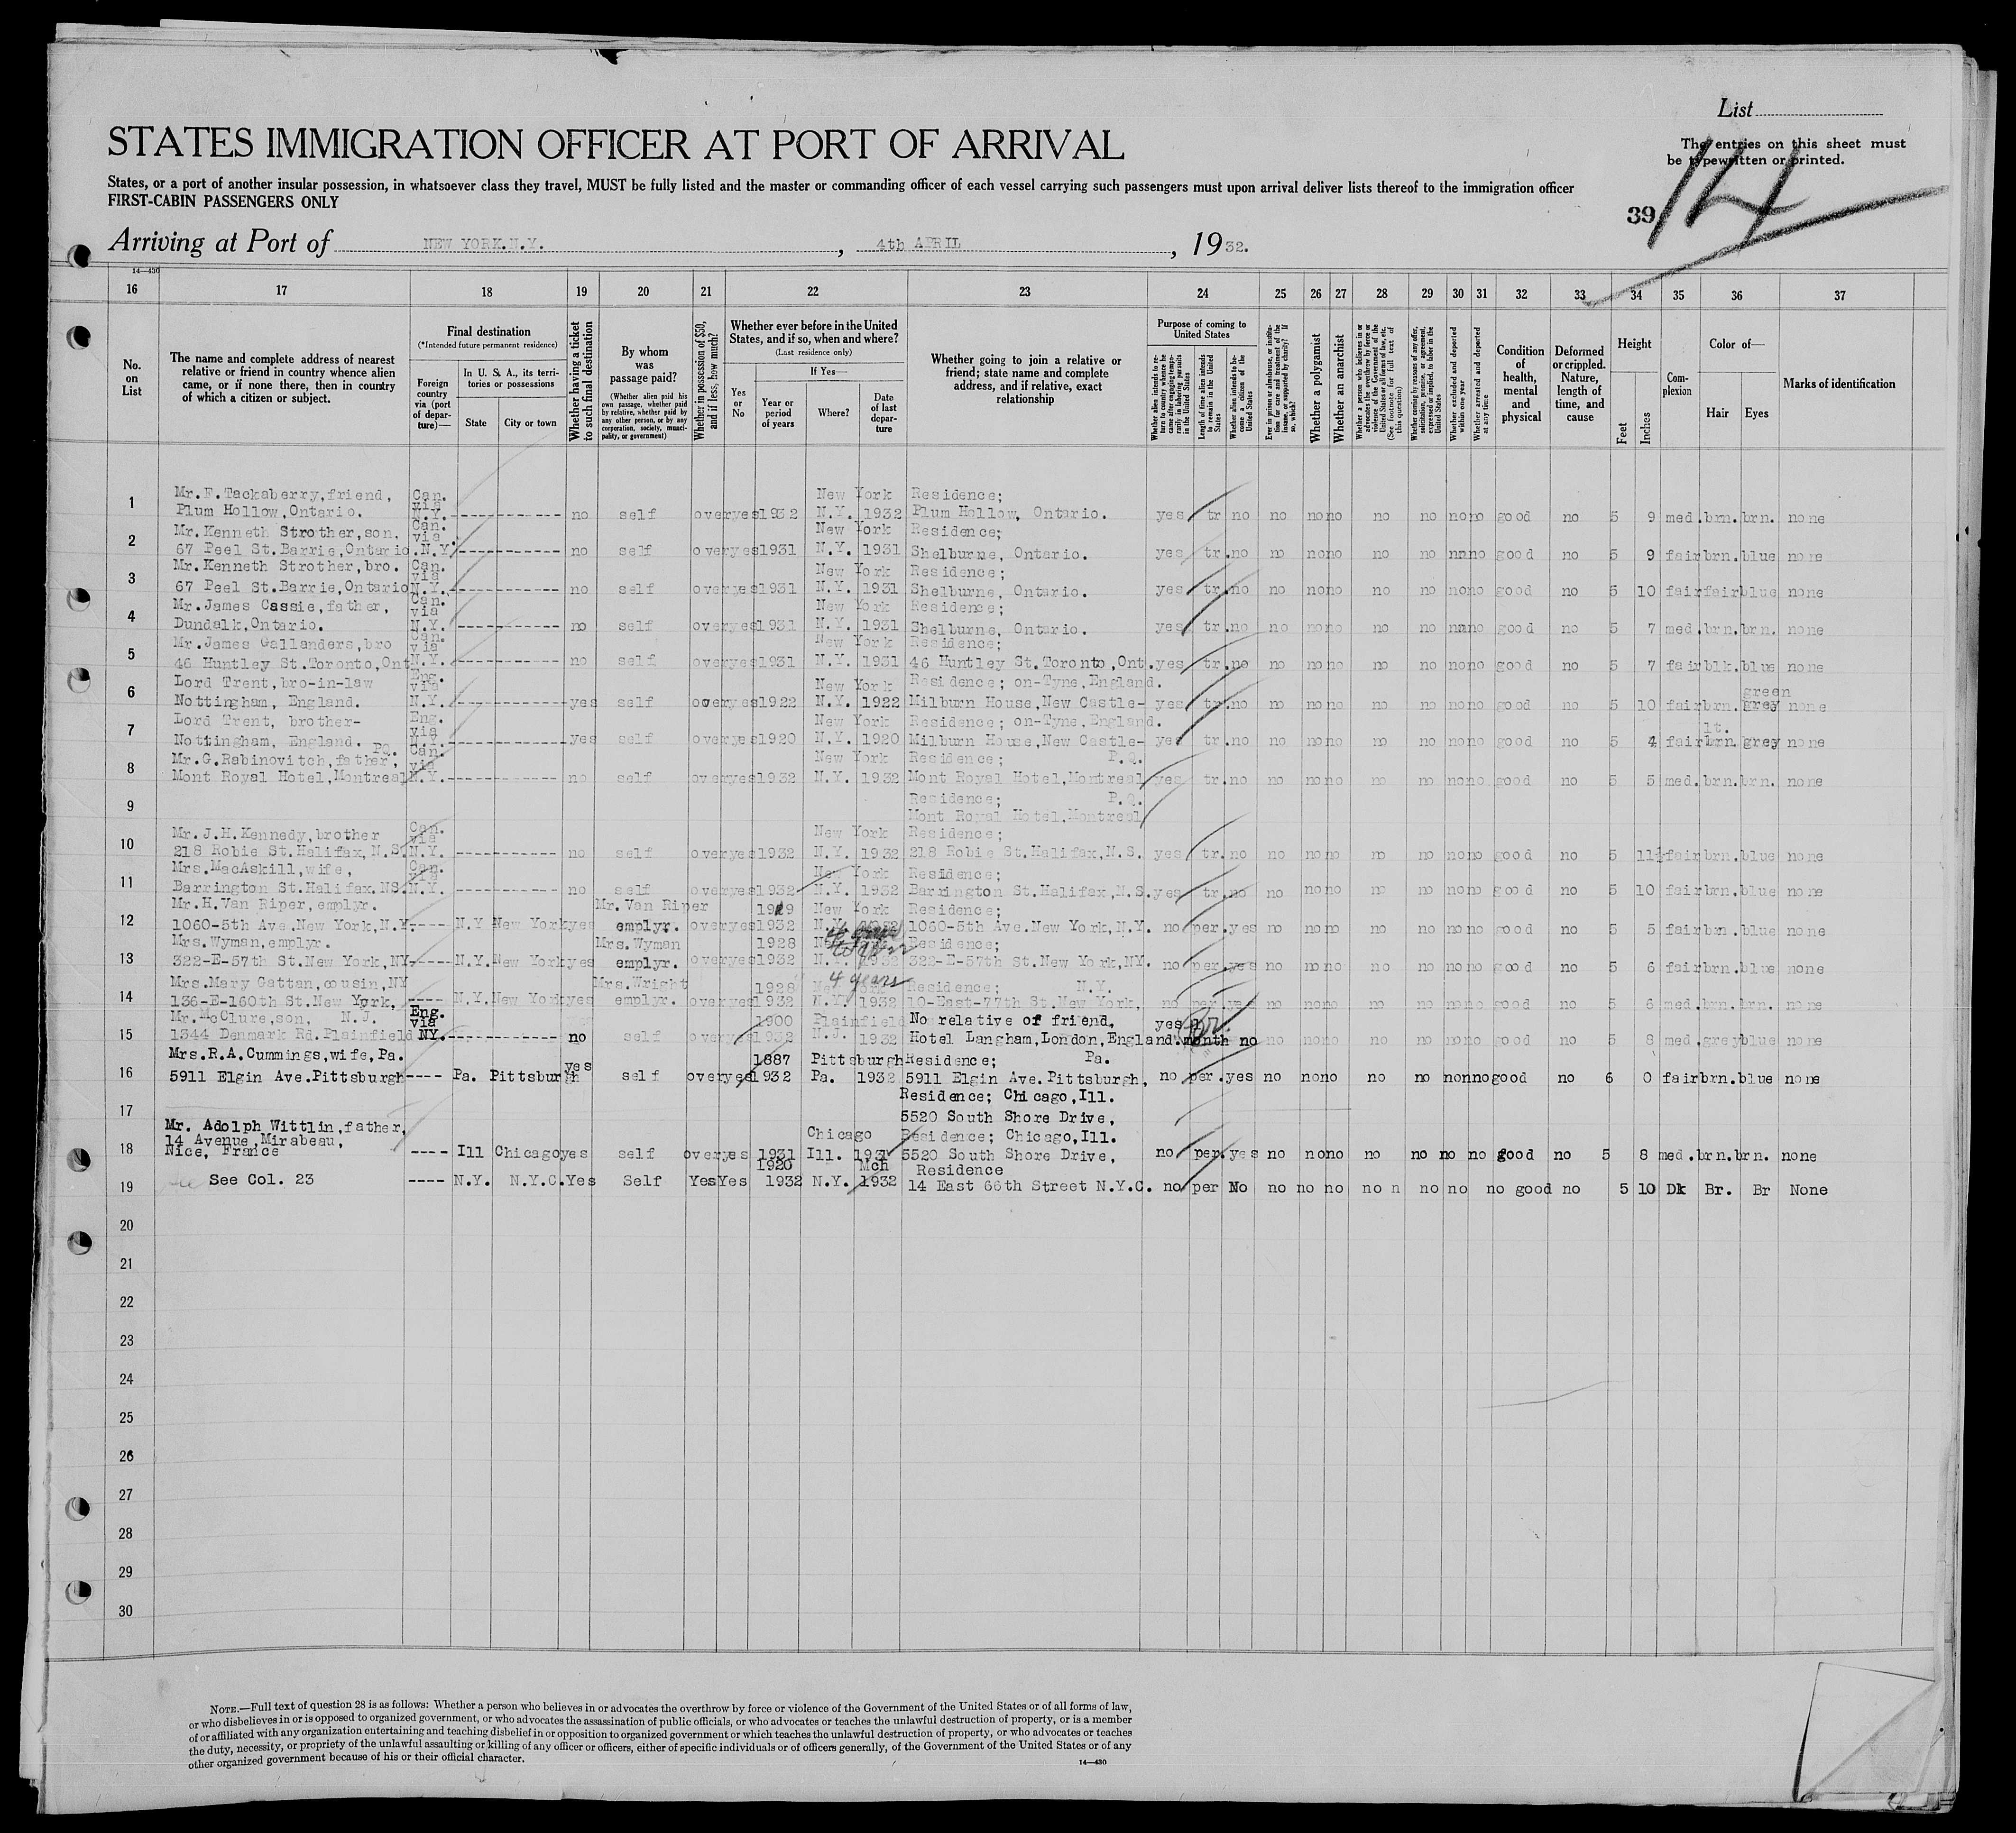 List
STATES IMMIGRATION OFFICER AT PORT OF ARRIVAL
The entries on this sheet must
be typewritten or printed.
States, or a port of another insular possession, in whatsoever class they travel, MUST be fully listed and the master or commanding officer of each vessel carrying such passengers must upon arrival deliver lists thereof to the immigration officer
FIRST-CABIN PASSENGERS ONLY
39 14
Arriving at Port of NEW YORK.N.Y. , 4th APRIL , 1932.
14—430
16 17 18 19 20 21 22 23 24 25 26 27 28 29 30 31 32 33 34 35 36 37
No. on List
The name and complete address of nearest relative or friend in country whence alien came, or if none there, then in country of which a citizen or subject.
Final destination
(*Intended future permanent residence)
Foreign country via (port of departure)—
In U. S. A., its territories or possessions
State City or town
Whether having a ticket to such final destination
By whom was passage paid?
(Whether alien paid his own passage, whether paid by relative, whether paid by any other person, or by any corporation, society, municipality, or government)
Whether in possession of $50, and if less, how much?
Whether ever before in the United States, and if so, when and where?
(Last residence only)
Yes or No
If Yes—
Year or period of years Where? Date of last departure
Whether going to join a relative or friend; state name and complete address, and if relative, exact relationship
Purpose of coming to United States
Whether alien intends to return to country whence he came after engaging temporarily in laboring pursuits in the United States
Length of time alien intends to remain in the United States
Whether alien intends to become a citizen of the United States
Ever in prison or almshouse, or institution for care and treatment of the insane, or supported by charity? If so, which?
Whether a polygamist
Whether an anarchist
Whether a person who believes in or advocates the overthrow by force or violence of the Government of the United States or all forms of law, etc. (See footnote for full text of this question)
Whether coming by reason of any offer, solicitation, promise, or agreement, expressed or implied, to labor in the United States
Whether excluded and deported within one year
Whether arrested and deported at any time
Condition of health, mental and physical
Deformed or crippled. Nature, length of time, and cause
Height
Feet Inches
Complexion
Color of—
Hair Eyes
Marks of identification
Mr.F.Tackaberry,friend, Can. New York Residence;
1 Plum Hollow,Ontario. N.Y. ------------ no self over yes 1932 N.Y. 1932 Plum Hollow, Ontario. yes tr no no no no no no no no good no 5 9 med. brn. brn. none
Mr.Kenneth Strother,son. Can. via New York Residence;
2 67 Peel St.Barrie,Ontario. N.Y. ------------ no self over yes 1931 N.Y. 1931 Shelburne, Ontario. yes tr. no no no no no no no no good no 5 9 fair brn. blue none
Mr.Kenneth Strother,bro. Can. via New York Residence;
3 67 Peel St.Barrie,Ontario N.Y. ------------ no self over yes 1931 N.Y. 1931 Shelburne, Ontario. yes tr. no no no no no no no no good no 5 10 fair fair blue none
Mr.James Cassie,father, Can. via New York Residence;
4 Dundalk,Ontario. N.Y. ------------ no self over yes 1931 N.Y. 1931 Shelburne, Ontario. yes tr. no no no no no no no no good no 5 7 med. brn. brn. none
Mr.James Gallanders,bro Can. via New York Residence;
5 46 Huntley St.Toronto,Ont N.Y. ------------ no self over yes 1931 N.Y. 1931 46 Huntley St.Toronto,Ont. yes tr. no no no no no no no no good no 5 7 fair blk. blue none
Lord Trent,bro-in-law Eng. via New York Residence; on-Tyne,England. green
6 Nottingham, England. N.Y. ------------ yes self over yes 1922 N.Y. 1922 Milburn House,New Castle- yes tr. no no no no no no no no good no 5 10 fair brn. grey none
Lord Trent, brother- Eng. via New York Residence; on-Tyne,England. lt.
7 Nottingham, England. N.Y. ------------ yes self over yes 1920 N.Y. 1920 Milburn House,New Castle- yes tr. no no no no no no no no good no 5 4 fair brn. grey none
Mr.G.Rabinovitch,father, PQ. Can. via New York Residence; P.Q.
8 Mont Royal Hotel,Montreal N.Y. ------------ no self over yes 1932 N.Y. 1932 Mont Royal Hotel,Montreal yes tr. no no no no no no no no good no 5 5 med. brn. brn. none
9 Residence; P.Q.
Mont Royal Hotel,Montreal
Mr.J.H.Kennedy,brother Can. via New York Residence;
10 218 Robie St.Halifax,N.S. N.Y. ------------ no self over yes 1932 N.Y. 1932 218 Robie St.Halifax,N.S. yes tr. no no no no no no no no good no 5 11½ fair brn. blue none
Mrs.MacAskill,wife, Can. via New York Residence;
11 Barrington St.Halifax.NS. N.Y. ------------ no self over yes 1932 N.Y. 1932 Barrington St.Halifax,N.S. yes tr. no no no no no no no no good no 5 10 fair brn. blue none
Mr.H.Van Riper,emplyr. Mr.Van Riper 1929 New York Residence;
12 1060-5th Ave.New York,N.Y. ---- N.Y New York yes emplyr. over yes 1932 N.Y. 1932 1060-5th Ave.New York,N.Y. no per. yes no no no no no no no good no 5 5 fair brn. blue none
Mrs.Wyman,emplyr. Mrs.Wyman 1928 Residence;
13 322-E-57th St.New York,NY ---- N.Y. New York yes emplyr. over yes 1932 N.Y. 1932 322-E-57th St.New York,NY. no per. yes no no no no no no no good no 5 6 fair brn. blue none
Mrs.Mary Gattan,cousin,NY Mrs.Wright 1928 4 years Residence; N.Y.
14 136-E-160th St.New York, ---- N.Y. New York yes emplyr. over yes 1932 N.Y. 1932 10-East-77th St.New York, no per yes no no no no no no no good no 5 6 med. brn. brn. none
Mr.McClure,son, N.J. Eng. via 1900 Plainfield No relative of friend, yes
15 1344 Denmark Rd.Plainfield NY. ------------ no self over yes 1932 N.J. 1932 Hotel Langham,London,England. month no no no no no no no no good no 5 8 med. grey blue none
Mrs.R.A.Cummings,wife,Pa. yes 1887 Pittsburgh Residence; Pa.
16 5911 Elgin Ave.Pittsburgh ---- Pa. Pittsburgh self over yes 1932 Pa. 1932 5911 Elgin Ave.Pittsburgh, no per. yes no no no no no non no good no 6 0 fair brn. blue none
Residence; Chicago,Ill.
17 5520 South Shore Drive,
Mr. Adolph Wittlin,father, Chicago Residence; Chicago,Ill.
14 Avenue,Mirabeau,
18 Nice, France ---- Ill Chicago yes self over yes 1931 Ill. 1931 5520 South Shore Drive, no per. yes no no no no no no no good no 5 8 med. brn. brn. none
1920 Mch Residence
19 See Col. 23 ---- N.Y. N.Y.C. Yes Self Yes Yes 1932 N.Y. 1932 14 East 66th Street N.Y.C. no per No no no no no n no no no good no 5 10 Dk Br. Br None
20
21
22
23
24
25
26
27
28
29
30
NOTE.—Full text of question 28 is as follows: Whether a person who believes in or advocates the overthrow by force or violence of the Government of the United States or of all forms of law,
or who disbelieves in or is opposed to organized government, or who advocates the assassination of public officials, or who advocates or teaches the unlawful destruction of property, or is a member
of or affiliated with any organization entertaining and teaching disbelief in or opposition to organized government or which teaches the unlawful destruction of property, or who advocates or teaches
the duty, necessity, or propriety of the unlawful assaulting or killing of any officer or officers, either of specific individuals or of officers generally, of the Government of the United States or of any
other organized government because of his or their official character.
14—430